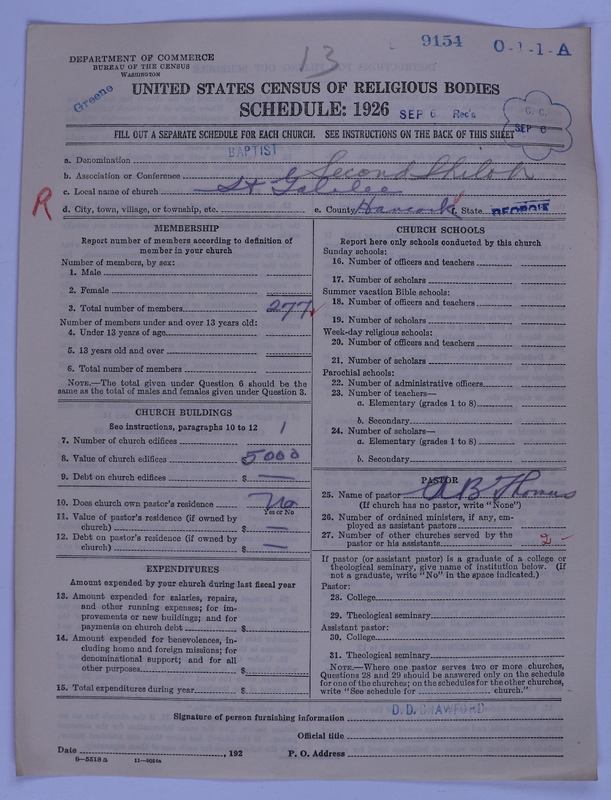 13
9154 0-1-1-A
DEPARTMENT OF COMMERCE
BUREAU OF THE CENSUS
WASHINGTON
Greene
UNITED STATES CENSUS OF RELIGIOUS BODIES
SCHEDULE: 1926 SEP 6 Rec'd
G. C.
SEP 6
FILL OUT A SEPARATE SCHEDULE FOR EACH CHURCH. SEE INSTRUCTIONS ON THE BACK OF THIS SHEET
a. Denomination BAPTIST
b. Association or Conference Second Shiloh
c. Local name of church St Galilee
R d. City, town, village, or township, etc. e. County Hancock f. State GEORGIA
MEMBERSHIP
Report number of members according to definition of
member in your church
Number of members, by sex:
1. Male
2. Female
3. Total number of members 277
Number of members under and over 13 years old:
4. Under 13 years of age
5. 13 years old and over
6. Total number of members
NOTE.—The total given under Question 6 should be the
same as the total of males and females given under Question 3.
CHURCH BUILDINGS
See instructions, paragraphs 10 to 12
7. Number of church edifices 1
8. Value of church edifices $5000
9. Debt on church edifices $ —
10. Does church own pastor's residence No
Yes or No
11. Value of pastor's residence (if owned by
church) $ —
12. Debt on pastor's residence (if owned by
church) $ —
EXPENDITURES
Amount expended by your church during last fiscal year
13. Amount expended for salaries, repairs,
and other running expenses; for im-
provements or new buildings; and for
payments on church debt $
14. Amount expended for benevolences, in-
cluding home and foreign missions; for
denominational support; and for all
other purposes $
15. Total expenditures during year $
CHURCH SCHOOLS
Report here only schools conducted by this church
Sunday schools:
16. Number of officers and teachers
17. Number of scholars
Summer vacation Bible schools:
18. Number of officers and teachers
19. Number of scholars
Week-day religious schools:
20. Number of officers and teachers
21. Number of scholars
Parochial schools:
22. Number of administrative officers
23. Number of teachers—
a. Elementary (grades 1 to 8)
b. Secondary
24. Number of scholars—
a. Elementary (grades 1 to 8)
b. Secondary
PASTOR
25. Name of pastor A B Thomas
(If church has no pastor, write "None")
26. Number of ordained ministers, if any, em-
ployed as assistant pastors
27. Number of other churches served by the
pastor or his assistants 2
If pastor (or assistant pastor) is a graduate of a college or
theological seminary, give name of institution below. (If
not a graduate, write "No" in the space indicated.)
Pastor:
28. College
29. Theological seminary
Assistant pastor:
30. College
31. Theological seminary
NOTE.—Where one pastor serves two or more churches,
Questions 28 and 29 should be answered only on the schedule
for one of the churches; on the schedules for the other churches,
write "See schedule for church."
Signature of person furnishing information D. D. CRAWFORD
Official title
Date , 192 P. O. Address
8—5518a 11—9064a